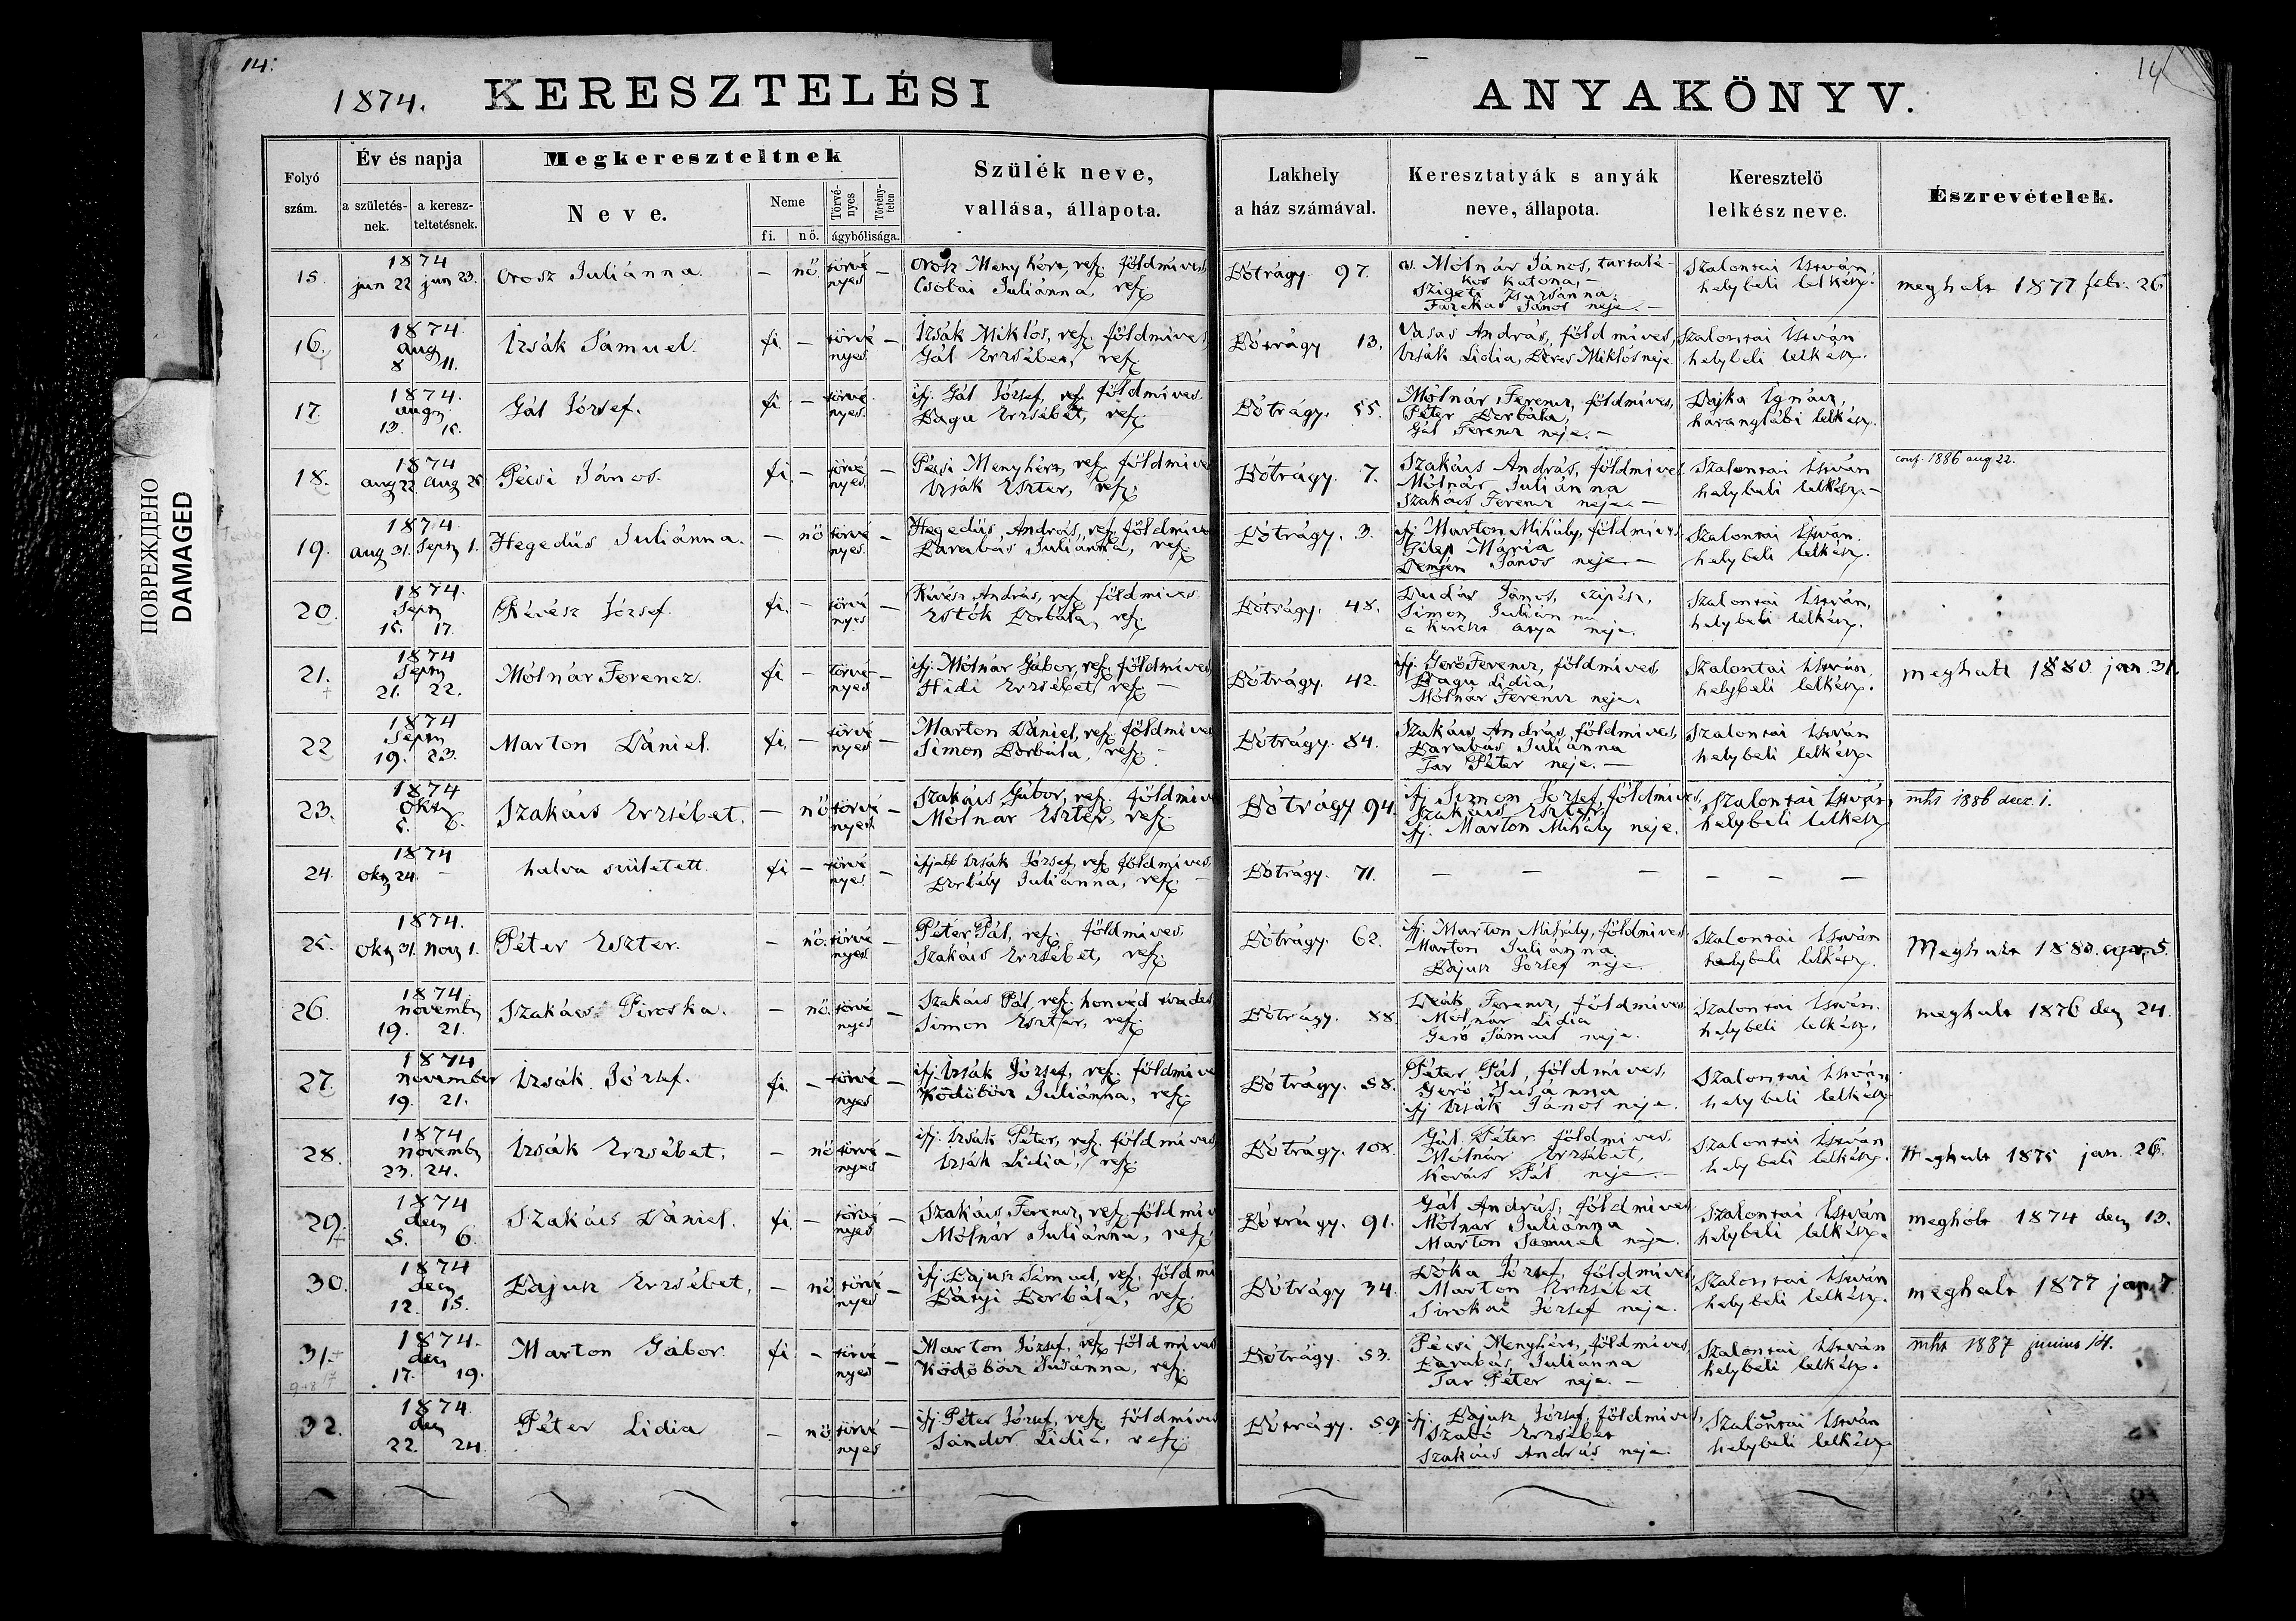 14.
14
1874. KERESZTELÉSI ANYAKÖNYV.
ПОВРЕЖДЕНО
DAMAGED
Folyó szám. Év és napja Megkereszteltnek Szülék neve, vallása, állapota. Lakhely a ház számával. Keresztatyák s anyák neve, állapota. Keresztelő lelkész neve. Észrevételek.
a születés-nek. a keresz-teltetésnek. Neve. Neme fi. nő. Törvé-nyes Törvény-telen ágybólisága.
15. 1874 jun 22 jun 23. Orosz Juliánna. – nő. törvé nyes –
Orosz Menyhért, ref. földmíves
Csobai Juliánna, ref.
Bótrágy. 97.
Mólnár János, tartalé-
kos katona, –
Szigeti Zsuzsánna,
Fazekas János neje. –
Szalontai István,
helybeli lelkész.
meghalt 1877 febr. 26
16. 1874. aug 8 11. Izsák Sámuel. fi. – törvé nyes –
Izsák Miklós, ref. földmíves
Gál Erzsébet, ref.
Bótrágy 13.
Vasas András, földmíves,
Izsák Lidia, Beres Miklós neje.
Szalontai István
helybeli lelkész.
17. 1874. aug 13. 15. Gál József. fi – törvé nyes.
ifj. Gál József, ref. földmíves.
Bagu Erzsébet, ref.
Bótrágy. 55.
Mólnár Ferencz, földmíves,
Péter Borbála,
Gál Ferencz neje. –
Bajka Ignácz,
haranglábi lelkész.
18. 1874 aug 22. aug 25 Pécsi János. fi. – törvé nyes. –
Pécsi Menyhért, ref. földmíve
Izsák Eszter, ref.
Bótrágy. 7.
Szakács András, földmíves
Mólnár Juliánna
Szakács Ferencz neje. –
Szalontai István
helybeli lelkész. –
conf. 1886 aug 22.
19. 1874. aug 31. Sept 1. Hegedüs Juliánna. – nő törvé nyes. –
Hegedüs András, ref. földmíve
Barabás Juliánna, ref.
Bótrágy. 3.
ifj. Marton Mihály, földmíves
Mária
Demjén János neje. –
Szalontai István.
helybeli lelkész.
20. 1874. Sept 15. 17. Révész József. fi. – törvé nyes –
Révész András, ref. földmíves.
Estók Borbála, ref.
Bótrágy. 48.
Dudás János, czipész,
Simon Juliánna
a kereszt atya neje.
Szalontai István,
helybeli lelkész.
21. 1874 Sept 21. 22. Mólnár Ferencz. fi – törvé- nyes –
ifj. Mólnár Gábor, ref. földmíves
Hidi Erzsébet, ref –
Bótrágy. 42.
ifj. Gerő Ferencz, földmíves
Bagu Lidia,
Mólnár Ferencz neje.
Szalontai István,
helybeli lelkész.
meghalt 1880. jan 31.
22 1874 Sept 19. 23. Marton Dániel. fi. – törvé nyes –
Marton Dániel, ref. földmíve
Simon Borbála, ref.
Bótrágy. 84.
Szakács András, földmíves,
Barabás Juliánna
Tar Péter neje. –
Szalontai István
helybeli lelkész.
23. 1874 Okt 5. 6. Szakács Erzsébet. – nő törvé nyes. –
Szakács Gábor, ref. földmíve
Mólnár Eszter, ref.
Bótrágy 94.
ifj Simon József, földmíves,
Szakács Eszter,
ifj. Marton Mihály neje.
Szalontai István
helybeli lelkész
mht 1886 decz. 1.
24. 1874 Okt 24. – halva született. fi – törvé nyes –
ifjabb Izsák József, ref. földmíves.
Borbély Juliánna, ref. –
Bótrágy. 71.
– – – – – –
25. 1874. Okt 31. Nov 1. Péter Eszter. – nő. törvé nyes –
Péter Pál, ref. földmíves.
Szakács Erzsébet, ref.
Bótrágy. 62.
ifj. Marton Mihály, földmíves
Marton Juliánna
Bajusz József neje.
Szalontai István
helybeli lelkész.
Meghalt 1880. 5.
26. 1874. novemb 19. 21. Szakács Piroska. – nő. törvé nyes –
Szakács Pál, ref. honvéd
Simon Eszter, ref.
Bótrágy. 88.
Deák Ferencz, földmíves
Mólnár Lidia
Gerő Sámuel neje.
Szalontai István.
helybeli lelkész,
meghalt 1876 dec 24.
27. 1874 november 19. 21. Izsák József. fi. – törvé nyes –
ifj. Izsák József, ref. földmíve
Ködöböcz Juliánna, ref.
Bótrágy. 58.
Péter Pál, földmíves,
Gerő Susánna
ifj Izsák János neje.
Szalontai István
helybeli lelkész
28. 1874 novemb 23. 24. Izsák Erzsébet. – nő törvé nyes –
ifj. Izsák Péter, ref. földmíves
Izsák Lidia, ref
Bótrágy. 108.
Gál Péter földmíves,
Mólnár Erzsébet,
Kovács Pál neje. –
Szalontai István
helybeli lelkész.
Meghalt 1875 jan. 26.
29. 1874 dec 5. 6. Szakács Dániel. fi. – törvé nyes –
Szakács Ferencz, ref. földmív
Mólnár Juliánna, ref
Bótrágy. 91.
Gál András, földmíves
Mólnár Juliánna
Marton Samuel neje.
Szalontai István
helybeli lelkész.
meghólt 1874 dec 13.
30. 1874 dec 12. 15. Bajusz Erzsébet, – nő törvé nyes –
ifj Bajusz Sámuel, ref. földmí
Bátyi Borbála, ref.
Bótrágy 34.
Bóka József, földmíves,
Marton Erzsébet
Sirokai József neje.
Szalontai István
helybeli lelkész.
meghalt 1877 jan 7.
31. 1874. dec 17. 19. Marton Gábor. fi – törvé nyes –
Marton József, ref földmíves
Ködöböcz Susánna, ref.
Bótrágy. 53.
Pécsi Menyhért, földmíves
Barabás Juliánna
Tar Péter neje. –
Szalontai István
helybeli lelkész.
mht 1887 junius 14.
32. 1874 dec 22. 24. Péter Lidia – nő törvé nyes –
ifj. Péter József, ref. földmíves
Sándor Lidia, ref.
Bótrágy. 59
ifj. Bajusz József, földmíves,
Szabó Erzsébet
Szakács András neje.
Szalontai István
helybeli lelkész